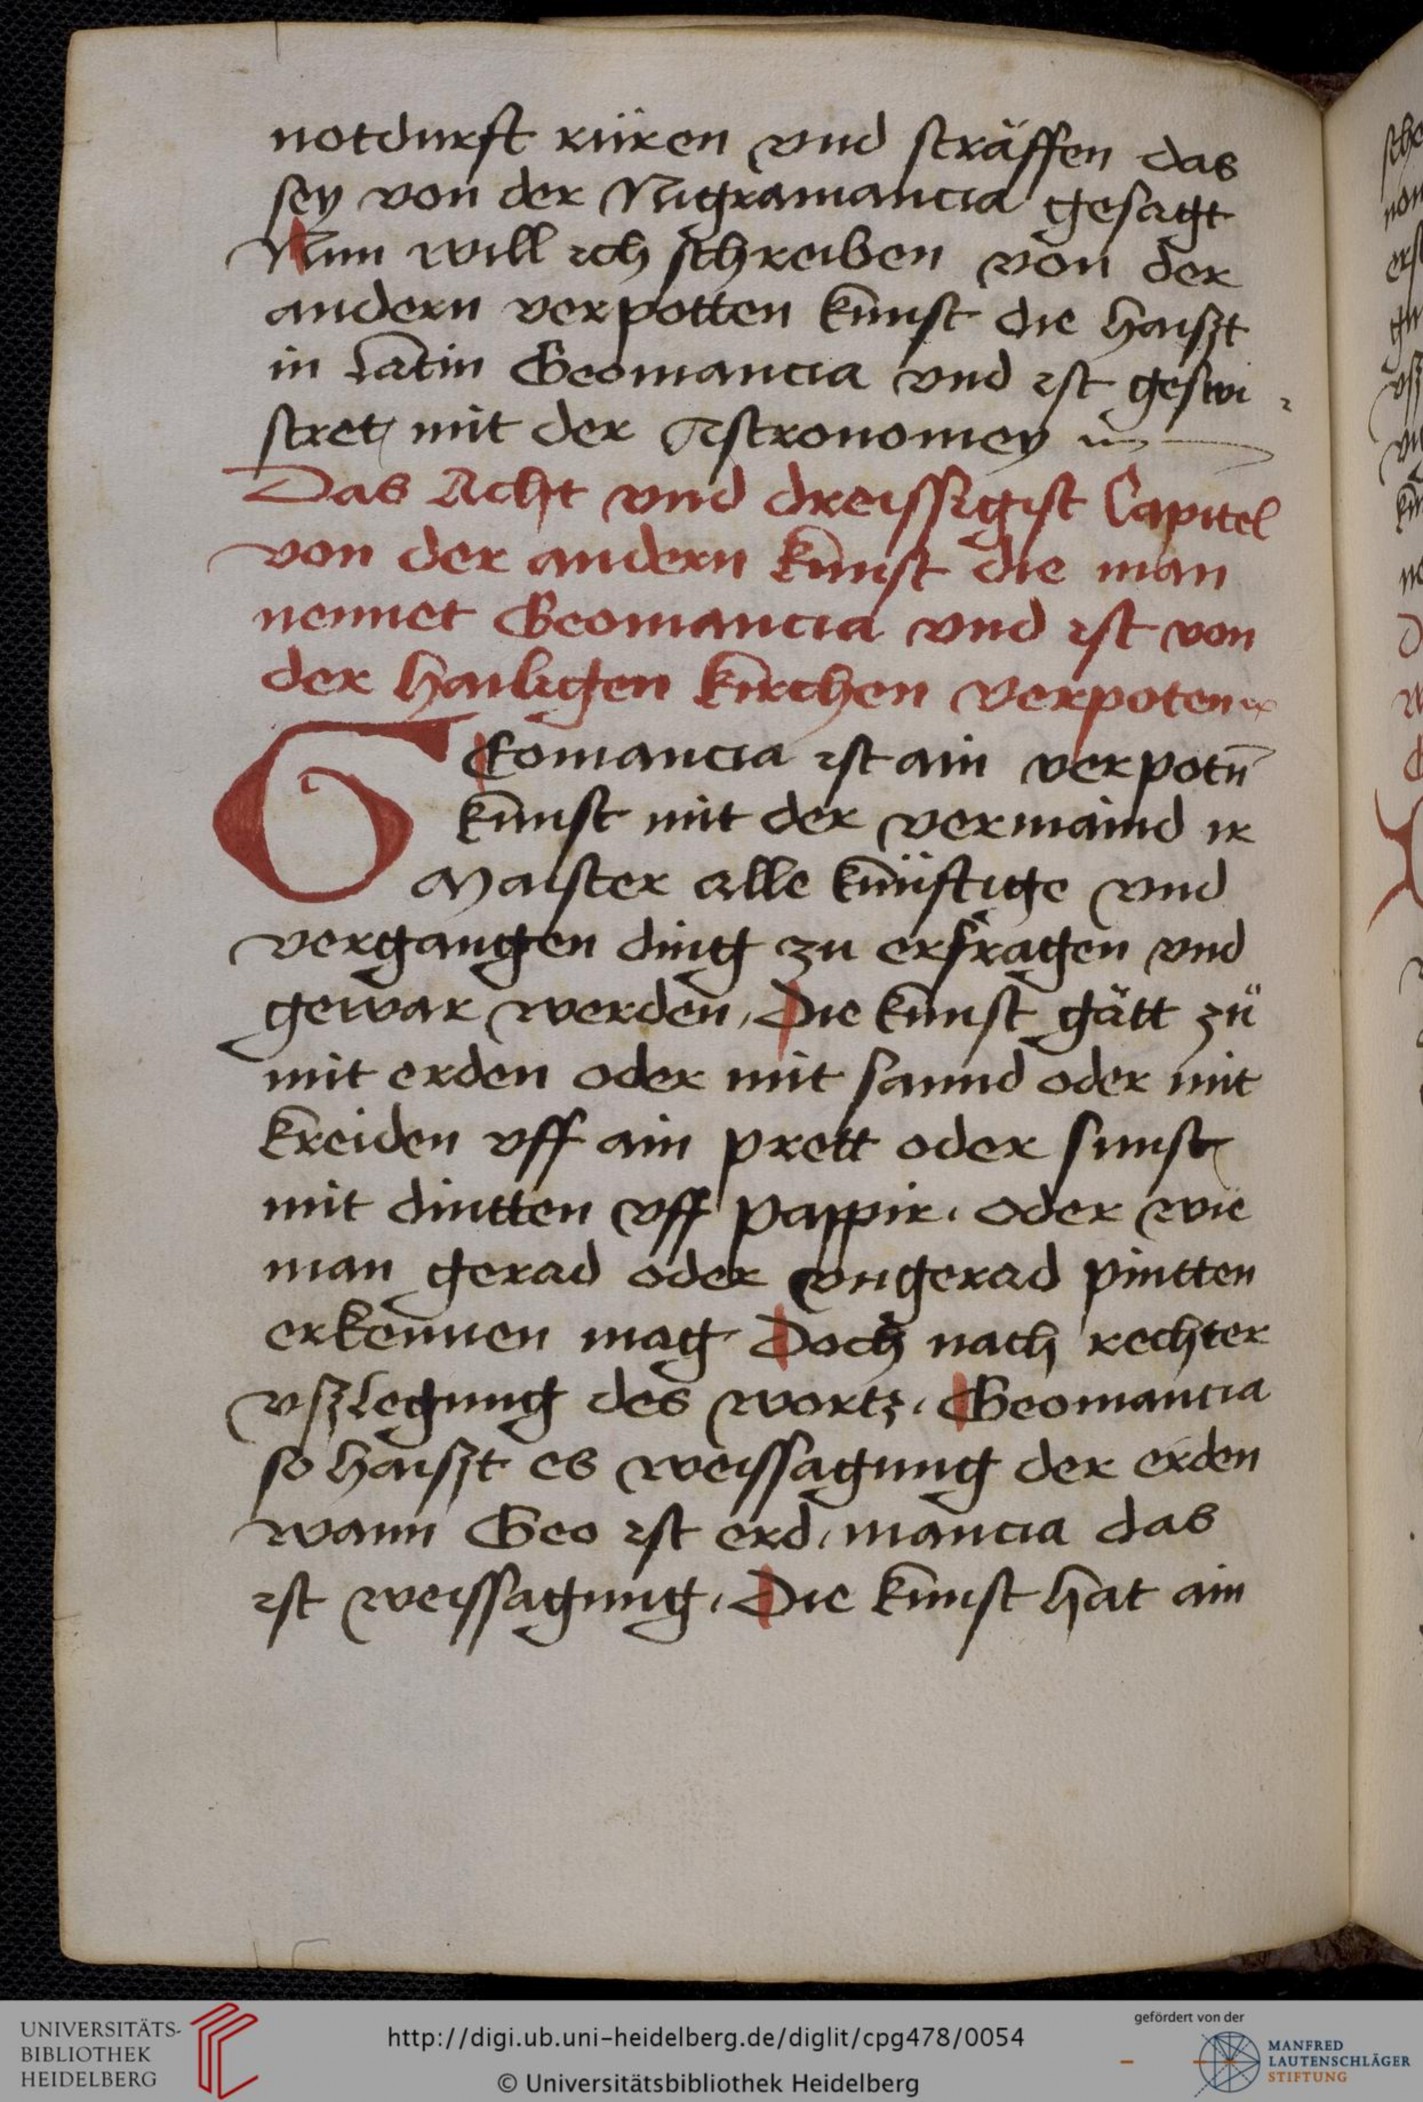 notdurft rüren vnd sträffen das
sey von der Nigramancia gesagt
Nun will ich schreiben von der
andern verpotten kunst die haiszt
in latin Geomancia vnd ist geswi
stret mit der Astronomey
Das Acht vnd dreissigist Capitel
von der andern kunst die man
nennet Geomancia vnd ist von
der hailigen kirchen verpoten
GEomancia ist ain verpotn̄
kunst mit der vermaind ir
Maister alle künftige vnd
vergangen ding zu erfragen vnd
gewar werden, Die kunst gätt zü
mit erden oder mit sannd oder mit
kreiden vff ain prett oder sunst
mit dintten vff pappir. oder wie
man gerad oder vngerad pintten
erkennen mag Doch nach rechter
vszlegung des wortz. Geomancia
so haiszt es weissagung der erden
wann Geo ist erd, mancia das
ist weissagung, Die kunst hat ain
sch
von
UNIVERSITÄTS-
BIBLIOTHEK
HEIDELBERG
http://digi.ub.uni-heidelberg.de/diglit/cpg478/0054
© Universitätsbibliothek Heidelberg
gefördert von der
MANFRED
LAUTENSCHLÄGER
STIFTUNG